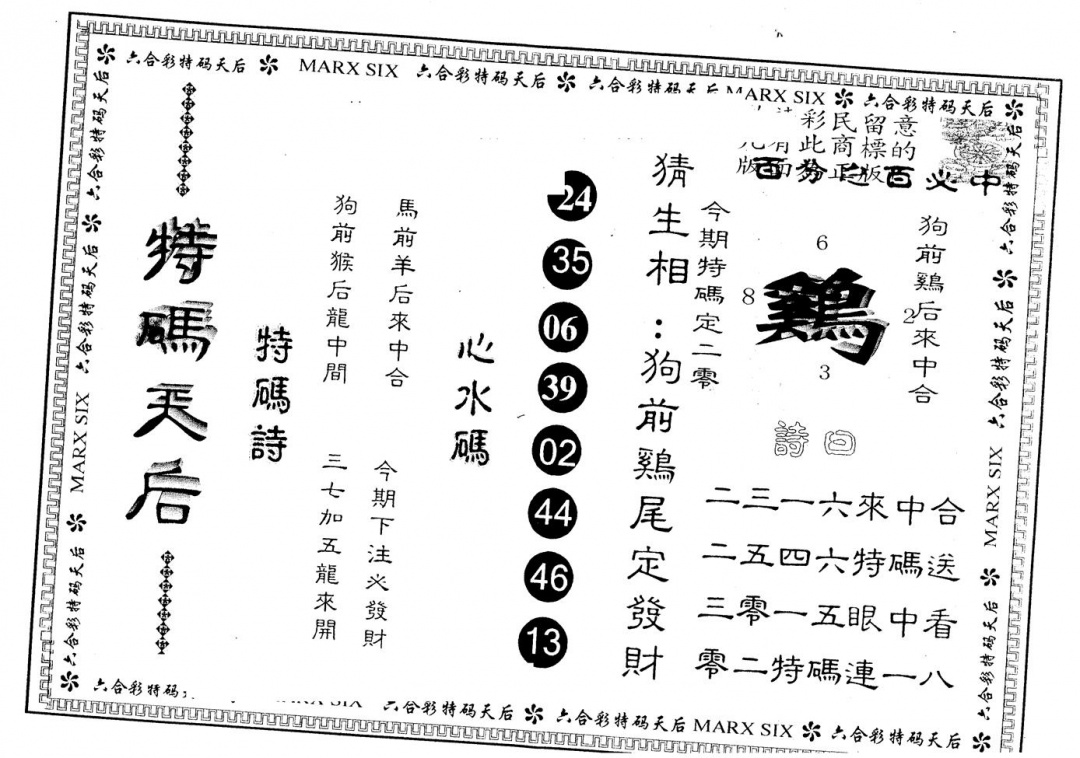 六合彩特码天后 MARX SIX 六合彩特码天后 六合彩特码天后 MARX SIX 六合彩特码天后
特碼天后
特碼詩
狗前猴后龍中間
馬前羊后來中合
三七加五龍來開
今期下注必發財
心水碼
24
35
06
39
02
44
46
13
猜生相：狗前鷄尾定發財
今期特碼定二零
彩民留意
有此商標的
版面為正版
百分之百必中
6
8
鷄
2
3
狗前鷄后來中合
詩曰
二三一六來中合
二五四六特碼送
三零一五眼中看
零二特碼連一八
六合彩特码天后 MARX SIX 六合彩特码天后
六合彩特码天后 六合彩特码天后 MARX SIX 六合彩特码天后
六合彩特码天后 六合彩特码天后 MARX SIX 六合彩特码天后